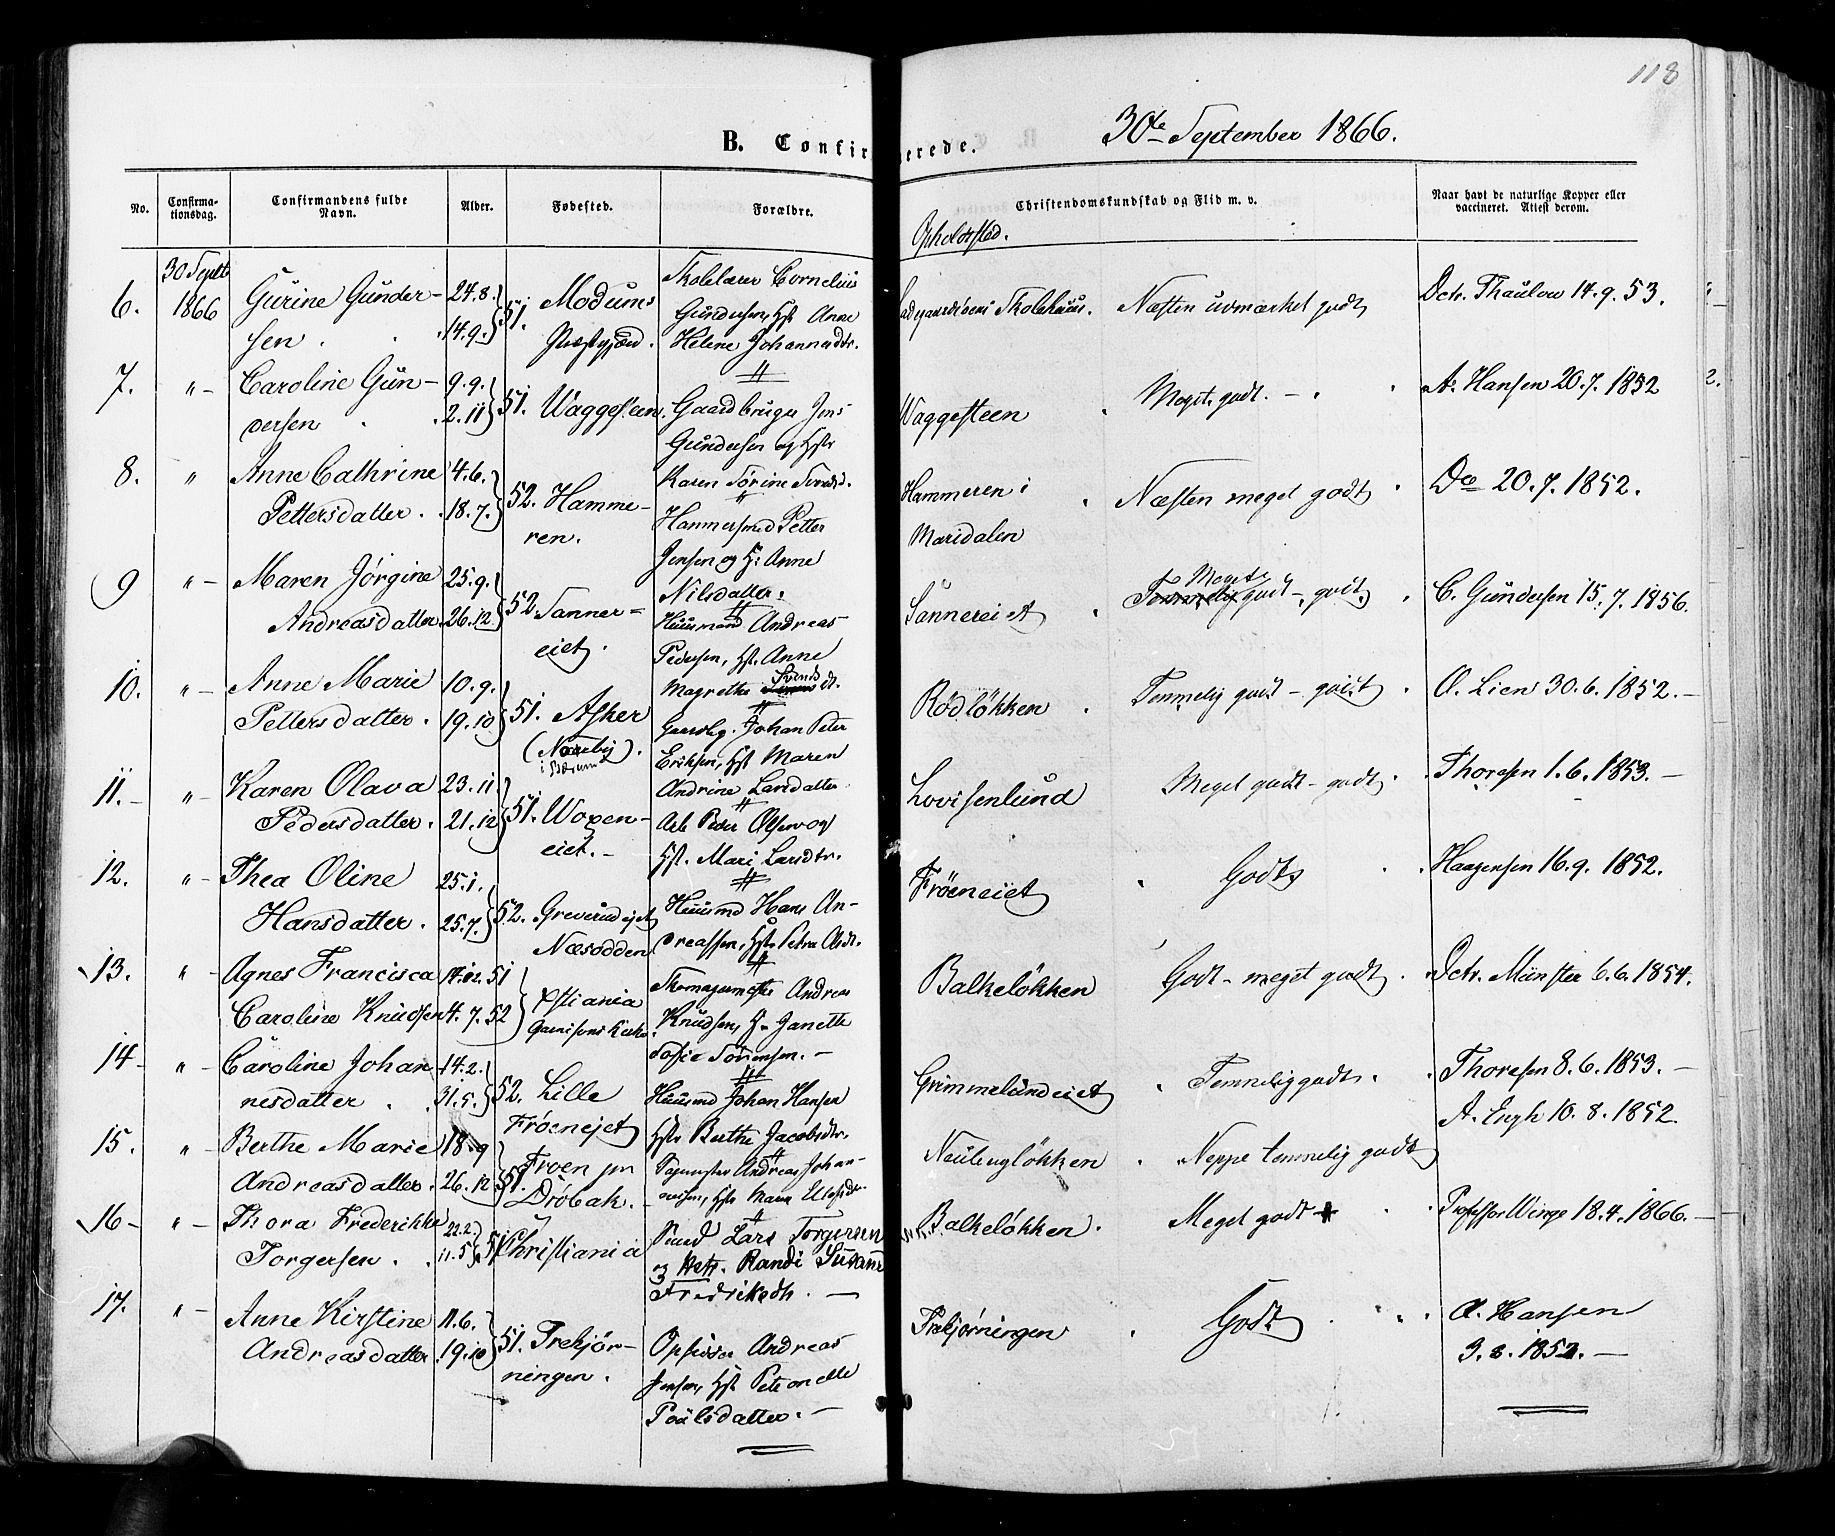 118
B. Confir merede. 30te September 1866.
No. Confirma-tionsdag. Confirmandens fulde Navn. Alder. Fødested. Forældre. Christendomskundskab og Flid m. v. Naar havt de naturlige Kopper eller vaccineret. Attest derom.
Opholdssted.
30 Septb
6. 1866 Gurine Gunder- 24.8. 51. Modums Skolelærer Cornelius
sen 14.9. Præstegjæld. Gundersen, Hst Anne
Helene Johannsdtr.
Skolehuus. Næsten udmærket godt Dctr. Thaulow 14.9.53.
7. " Caroline Gun- 9.9. 51. Waggesteen. Gaardbruger Jens
dersen 2.11 Gundersen og Hstr
Karen Sørine
Waggesteen Meget godt. A. Hansen 20.7.1852
8. " Anne Cathrine 4.6. 52. Hamme-
Pettersdatter. 18.7. ren. Hammersmed Petter
Jensen og H: Anne
Nilsdatter.
Hammeren i Næsten meget godt Do 20.7.1852.
Maridalen
9 " Maren Jørgine 25.9. 52. Sanner- Huusmand Andreas
Andreasdatter. 26.12. eiet. Pedersen, Hst. Anne
Magrethe Svends dt.
Sannereiet Meget godt - godt C. Gundersen 15.7.1856.
10. " Anne Marie 10.9. 51. Asker Gaardbg. Johan Peter
Pettersdatter. 19.10 i Bærum Eriksen, Hst Maren
Andrine Larsdatter
Rødløkken Temmelig godt - godt O. Lien 30.6.1852.
11. " Karen Olava 23.11. 51. Woxen- Arb Peder Olsen og
Pedersdatter. 21.12 eiet. Hst. Mari Larsdtr.
Lovisenlund Meget godt - godt Thoresen 1.6.1853.
12. " Thea Oline 25.1. 52. Greverudejet Huusmd Hans An-
Hansdatter. 25.7. Næsodden dreassen, Hstr Petra
Frøeneiet Godt Haagensen 16.9.1852.
13. " Agnes Francisca 14.12.51 Xstiania Andreas
Caroline Knudsen 4.7.52 Garnisons Kirke Knudsen, H. Janette
Sofie Sørensen.
Balkeløkken Godt - meget godt Dctr. Münster 6.6.1854.
14 " Caroline Johan 14.2. 52. Lille Huusmd Johan Hansen
nesdatter 31.5. Frøenejet Hstr Berthe Jacobsdtr.
Grimmelundeiet Temmelig godt Thoresen 8.6.1853.
15. " Berthe Marie 18.9 51. Froen pr Andreas Johan-
Andreasdatter. 26.12 Drøbak. Hstr
Neubergløkken Neppe temmelig godt A. Engh 10.8.1852.
16 " Thora Frederikke 22.2. 51 Christiania Lars Torgersen
Torgersen 11.5 og Hstr. Randi Susanne
Fredriksdtr.
Balkeløkken. Meget godt Professor Winge 18.4.1866.
17. " Anne Kirstine 11.6. 51. Trekjør- Opsidder Andreas
Andreasdatter. 19.10 ningen. Jensen, Hst Petronelle
Poulsdatter.
Trekjørningen Godt A. Hansen
3.8.1852.